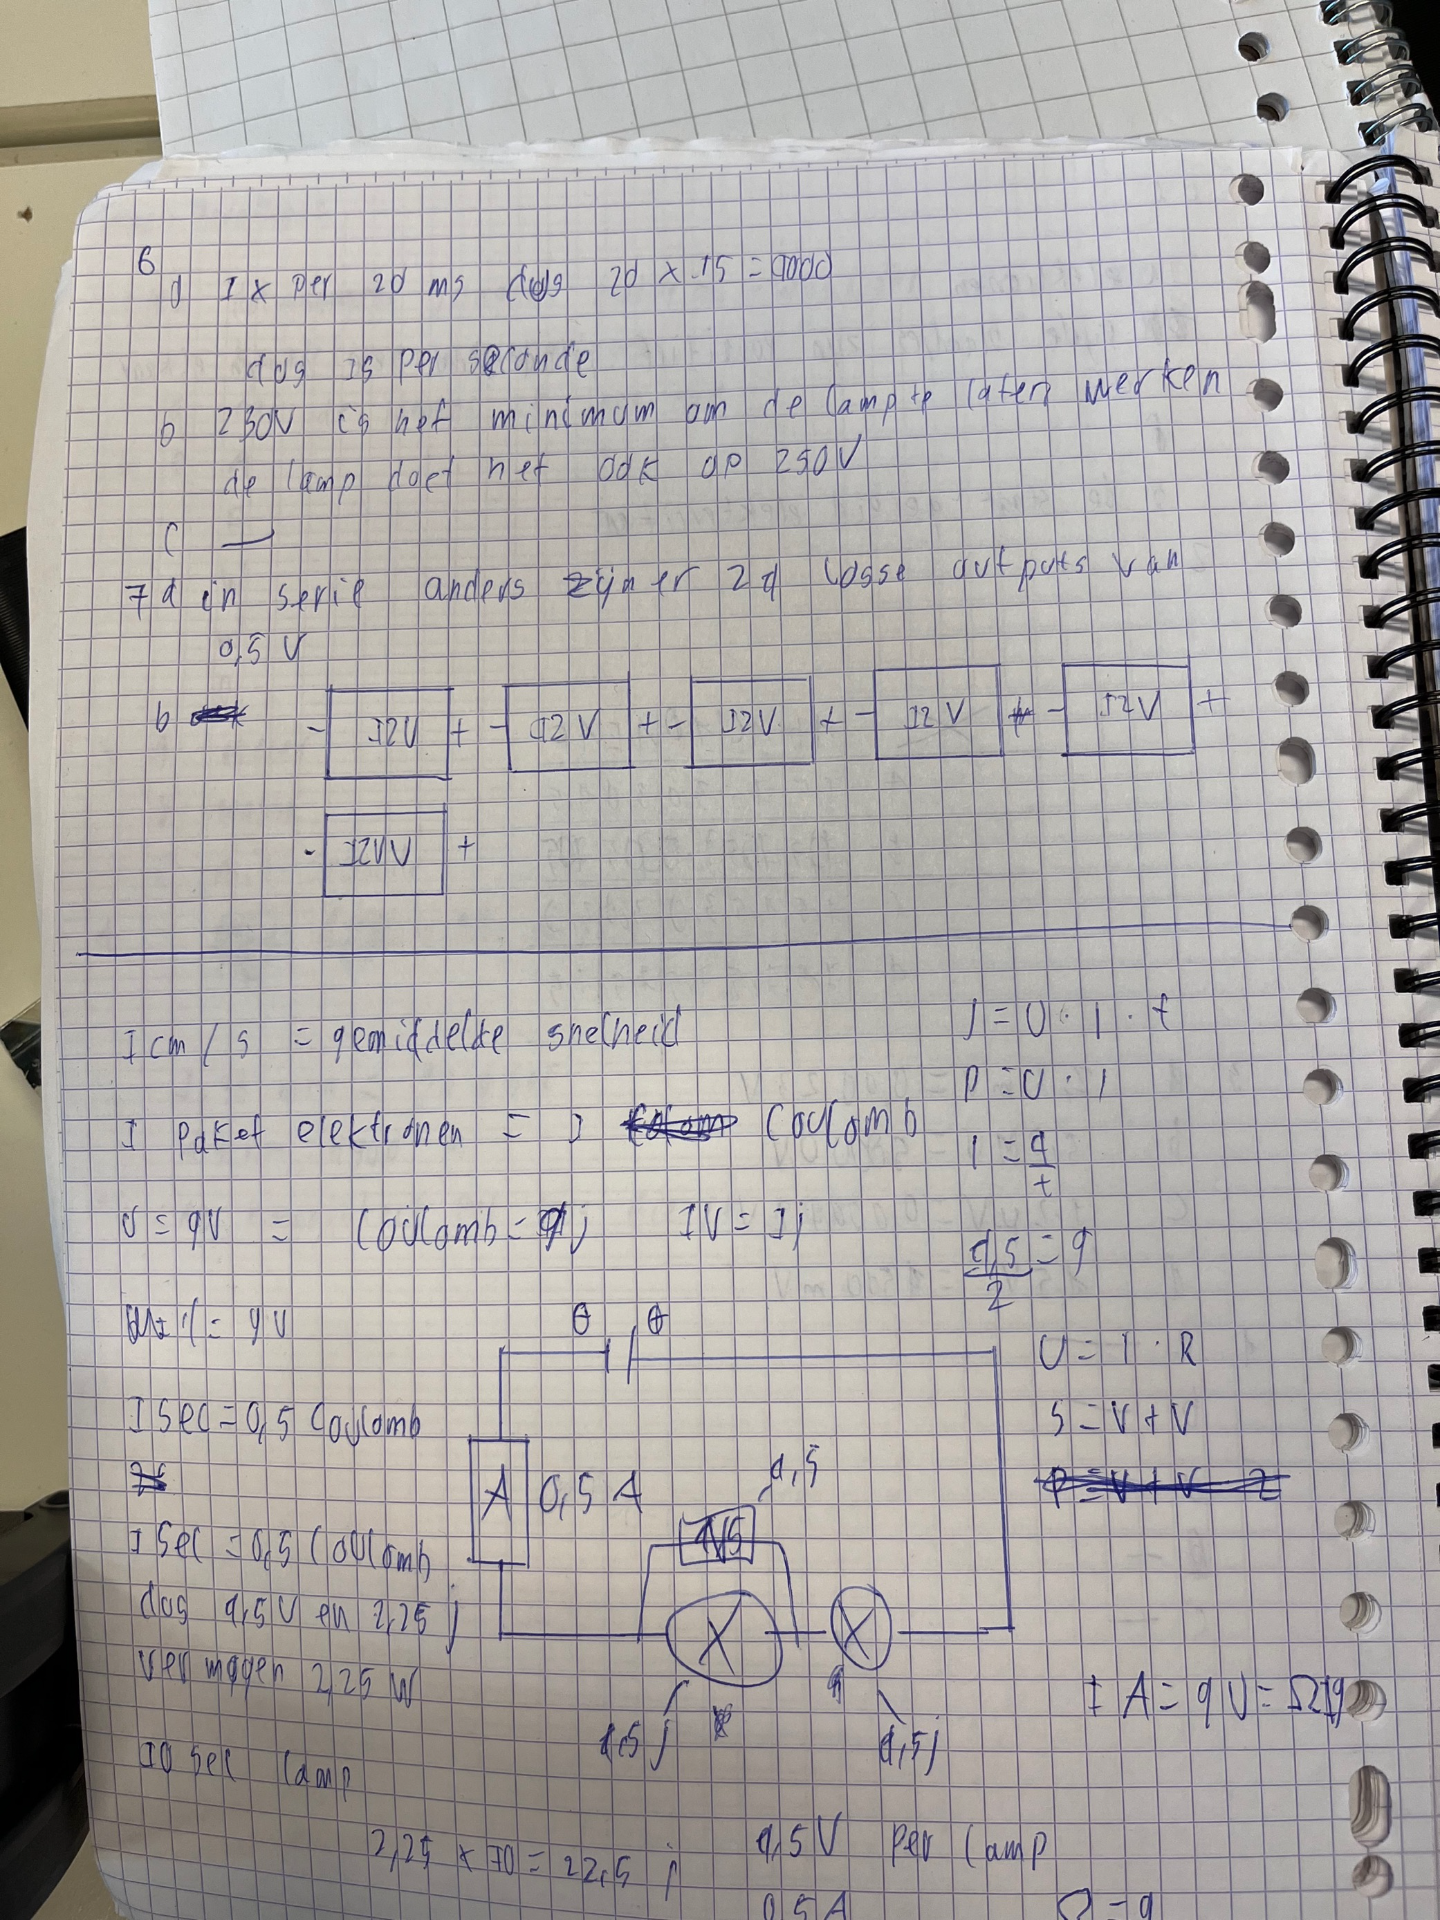 6
d 1x per 20 ms dus 20 x 15 = 1000
dus is per seconde
b 230V is het minimum om de lamp te laten werken
de lamp doet het ook op 230V
c —
7 a in serie anders zijn er 24 losse outputs van
0,5 V
b - 12V + - 12V + - 12V + - 12V + - 12V +
- 12V +
1 cm/s = gemiddelde snelheid
J = U · I · t
P = U · I
1 paket elektronen = 1 Coulomb
I = q/t
U = 9V = Coulomb = 9j 1V = 1j
4,5/2 = 9
9V
U = I · R
1 sec = 0,5 Coulomb
S = V + V
P = V + V
A 0,5 A
4,5
1 sec = 0,5 Coulomb
dus 4,5V en 2,25 j
vermogen 2,25 W
4,5 j
4,5 j
1 A = 9V = Ω
10 sec lamp
2,25 x 10 = 22,5 j
4,5V per lamp
0,5A
Ω = 9